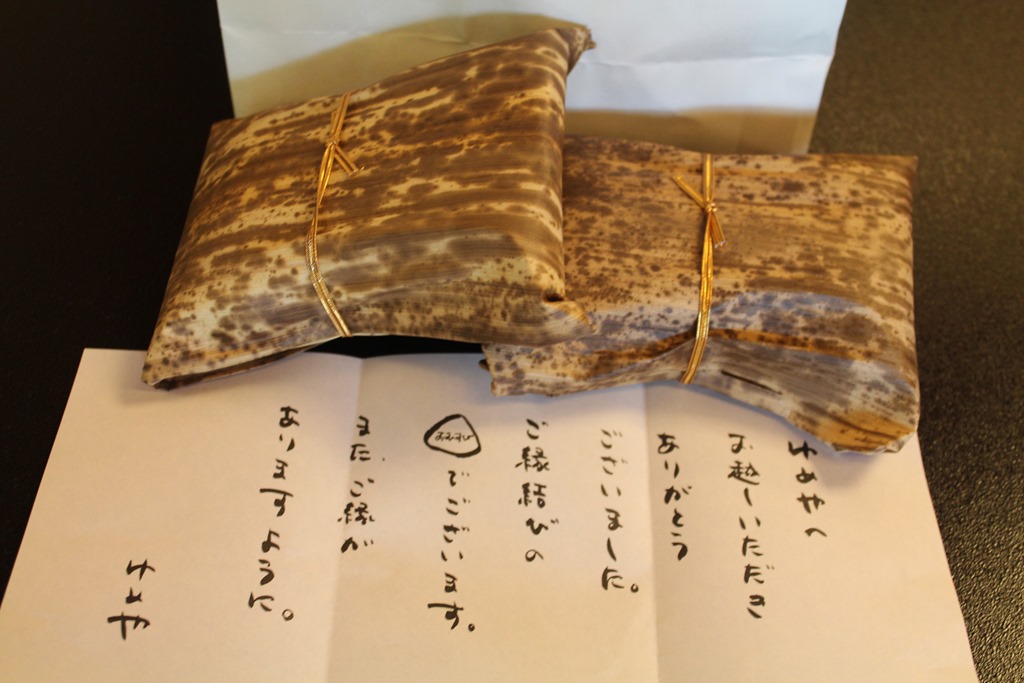 ゆめやへ
お越しいただき
ありがとう
ございました。
ご縁結びの
おむすび でございます。
また、ご縁が
ありますように。
ゆめや